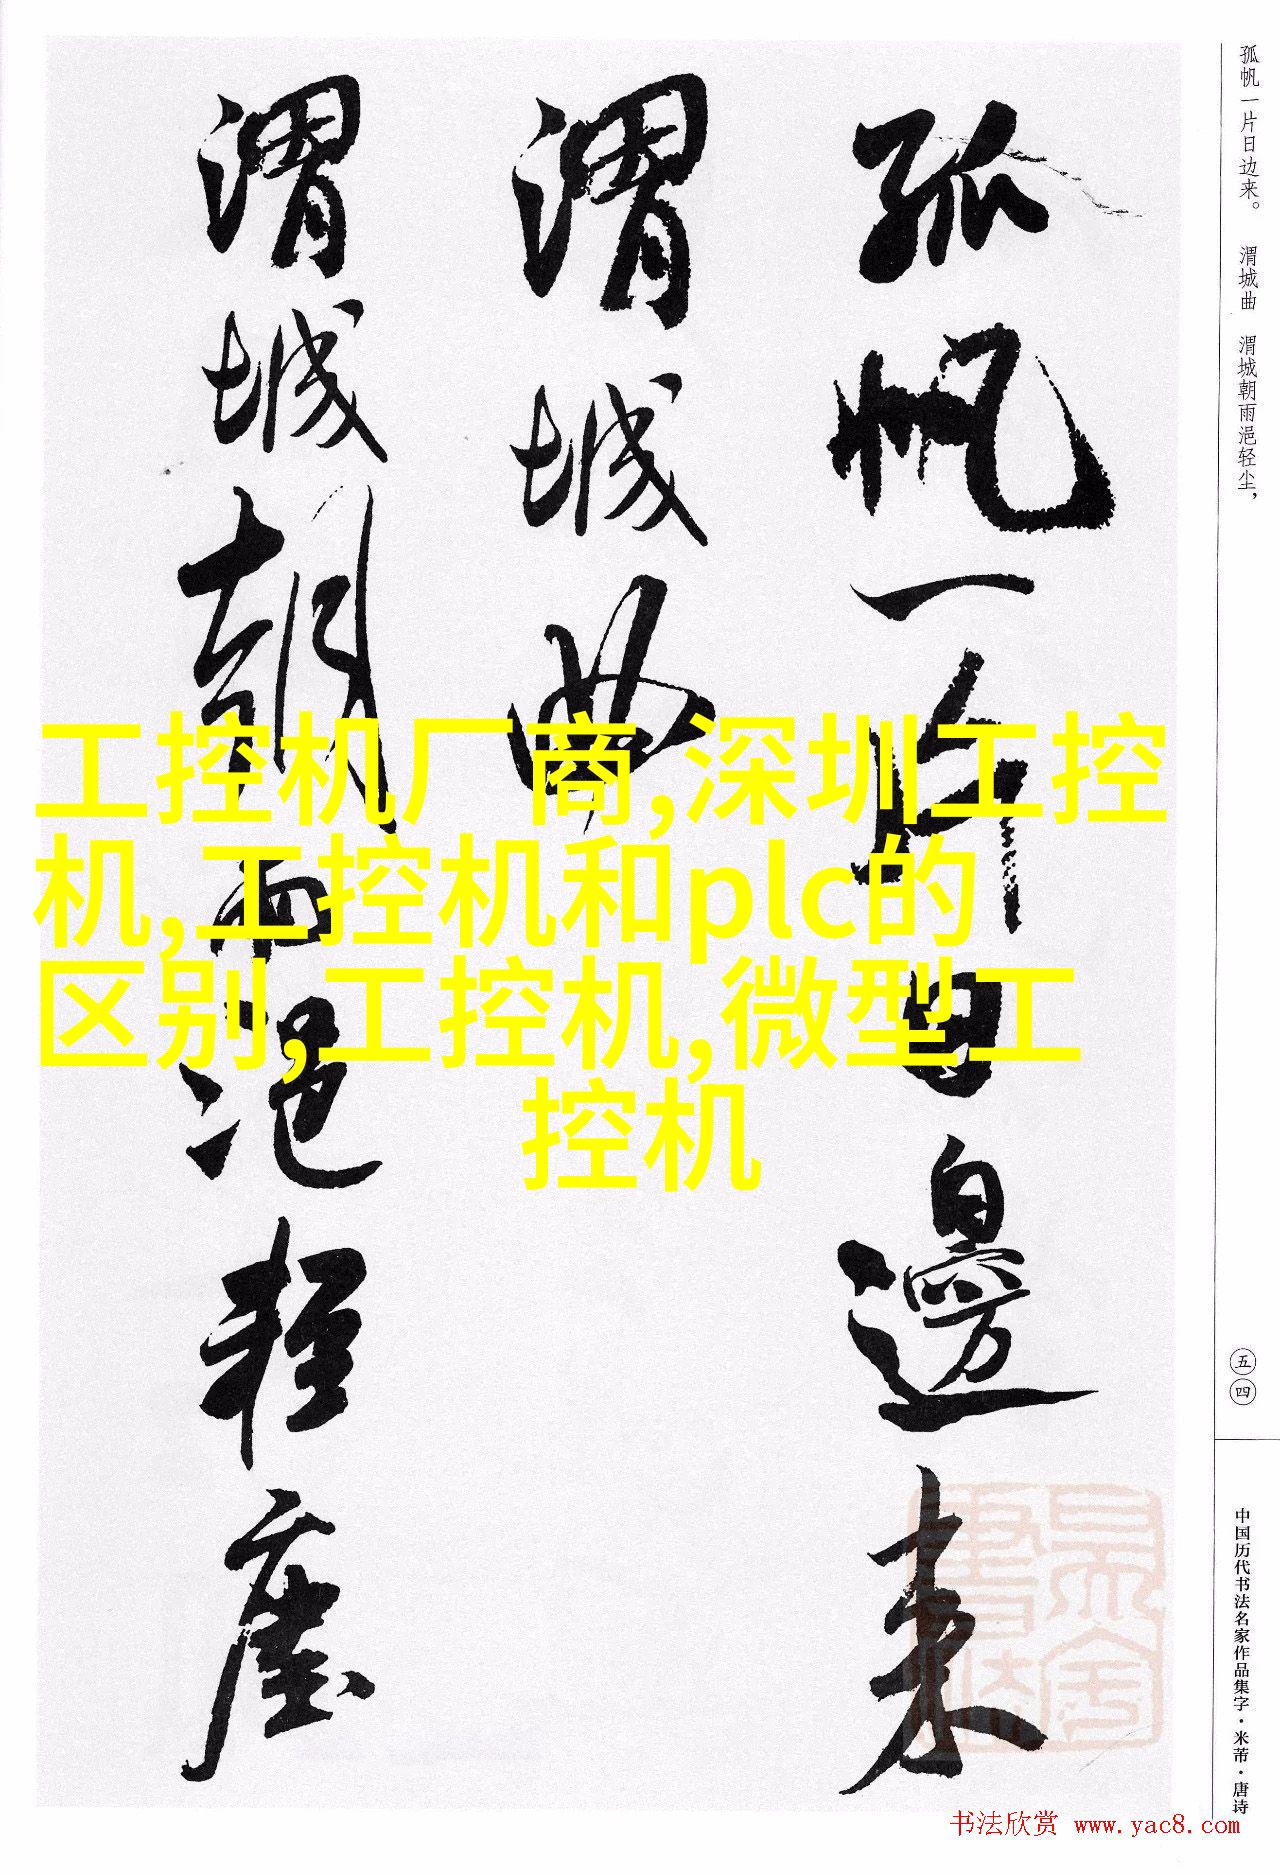 孤帆一片日边来。 渭城曲 渭城朝雨浥轻尘，
孤帆一片日邊来
渭城曲
渭城朝雨浥轻塵
工控机厂商,深圳工控
机,工控机和plc的
区别,工控机,微型工
控机
五四
中国历代书法名家作品集字·米芾·唐诗
书法欣赏 www.yac8.com